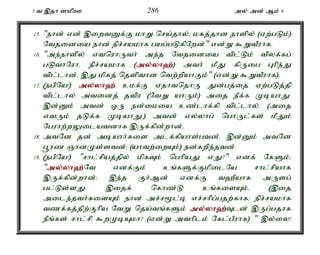 7 வஇதா ஸமிஊ 286 அல் அன் ஆம் 6
15. "நான் என் இறைவனுக்கு மாறு செய்தால், மகத்தான நாளில் (ஏற்படும்)
வேதனையை நான் நிச்சயமாக பயப்படுகிறேன்" என்று கூறுவீராக.
16. "அந்நாளில் எவரொருவர் அந்த வேதனையை விட்டும் விலக்கப்
படுவாரோ, நிச்சயமாக (அல்லாஹ்) அவர் மீது கிருபை புரிந்து
விட்டான். இது மிகத் தெளிவான வெற்றியாகும்" (என்று கூறுவீராக).
17. (நபியே!) அல்லாஹ் உமக்கு ஏதாவதொரு துன்பத்தை ஏற்படுத்தி
விட்டால் அவனைத் தவிர (வேறு யாரும்) அதை நீக்க முடியாது.
இன்னும் அவன் ஒரு நன்மையை உண்டாக்கி விட்டால், (அதை
எவரும் தடுக்க முடியாது.) அவன் எல்லாப் பொருட்கள் மீதும்
பேராற்றலுடையவனாக இருக்கின்றான்.
18. அவனே தன் அடியார்களை அடக்கியாள்பவன்; இன்னும் அவனே
பூரண ஞானமுள்ளவன்; (யாவற்றையும்) நன்கறிந்தவன்.
19. (நபியே!) "சாட்சியத்தில் மிகவும் பெரியது எது?" எனக் கேளும்;
"அல்லாஹ்வே எனக்கும் உங்களுக்குமிடையே சாட்சியாக
இருக்கின்றான்; இந்த குர்ஆன் எனக்கு வஹீயாக அருளப்
பட்டுள்ளது. இதைக் கொண்டு உங்களையும், (இதை
அடைந்தவர்களையும் நான் அச்சமூட்டி எச்சரிப்பதற்காக; நிச்சயமாக
வணக்கத்திற்குரிய வேறு தெய்வங்களும் அல்லாஹ்வுடன் இருப்பதாக
நீங்கள் சாட்சி கூறமுடியுமா? (என்று அவரிடம் கேட்பீராக) " இல்லை!